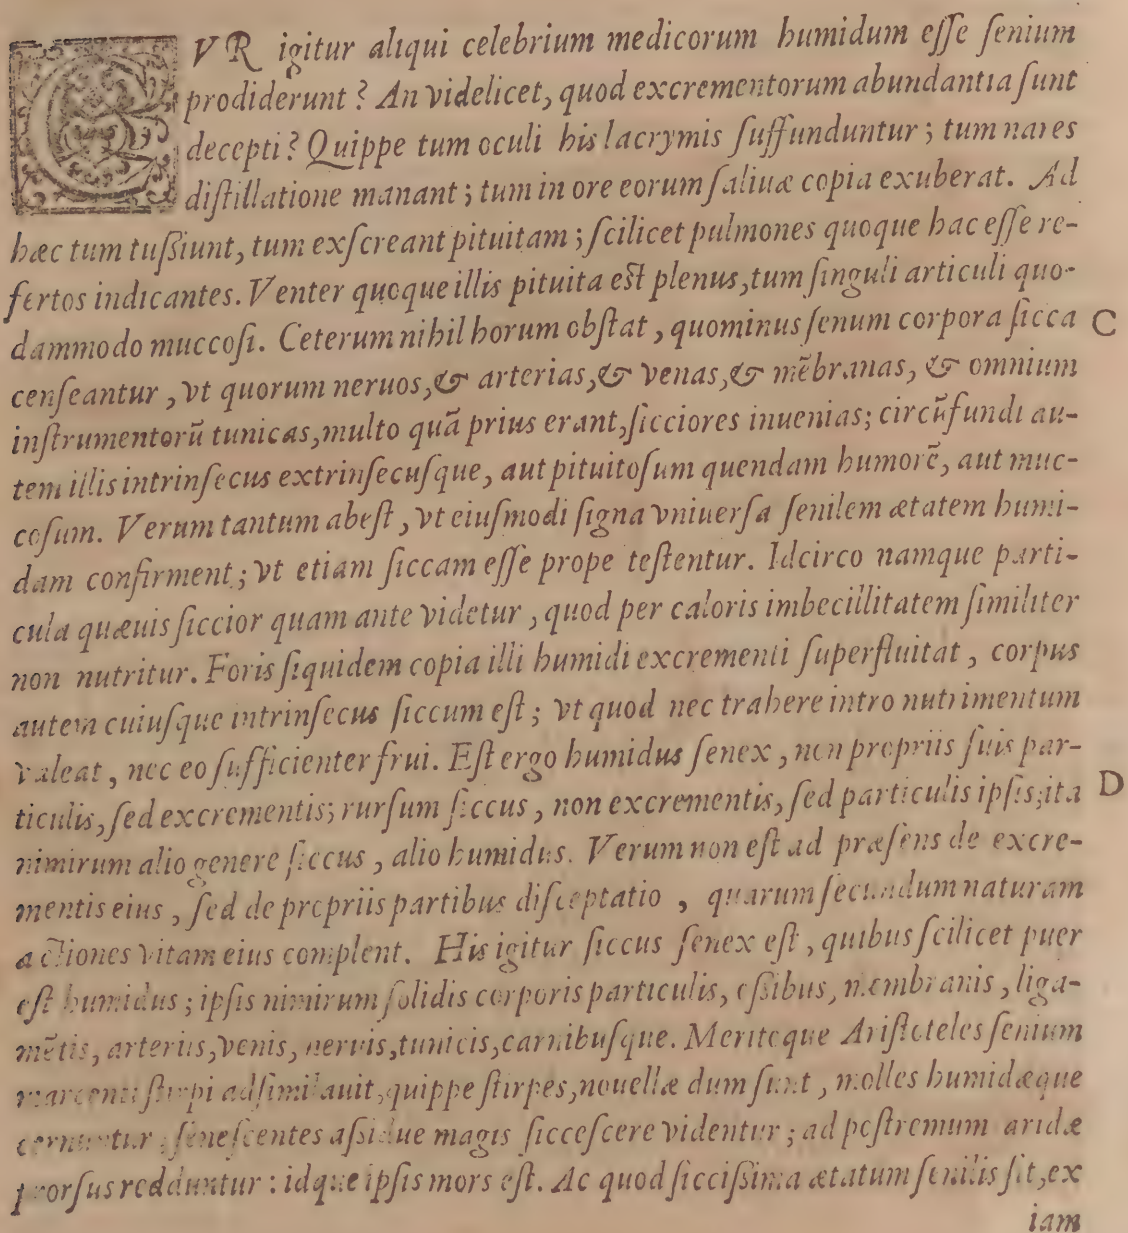 CVR igitur aliqui celebrium medicorum humidum eſſe ſenium
prodiderunt? An videlicet, quod excrementorum abundantia ſunt
decepti? Quippe tum oculi his lacrymis ſuffunduntur; tum nares
diſtillatione manant; tum in ore eorum ſaliuæ copia exuberat. Ad
hæc tum tuſsiunt, tum exſcreant pituitam; ſcilicet pulmones quoque hac eſſe re-
fertos indicantes. Venter quoque illis pituita eſt plenus, tum ſinguli articuli quo-
dammodo muccoſi. Ceterum nihil horum obſtat, quominus ſenum corpora ſicca C
cenſeantur, vt quorum neruos, & arterias, & venas, & mẽbranas, & omnium
inſtrumentorũ tunicas, multo quã prius erant, ſicciores inuenias; circũfundi au-
tem illis intrinſecus extrinſecuſque, aut pituitoſum quendam humorẽ, aut muc-
coſum. Verum tantum abeſt, vt eiuſmodi ſigna vniuerſa ſenilem ætatem humi-
dam confirment; vt etiam ſiccam eſſe prope teſtentur. Idcirco namque parti-
cula quæuis ſiccior quam ante videtur, quod per caloris imbecillitatem ſimiliter
non nutritur. Foris ſiquidem copia illi humidi excrementi ſuperfluitat, corpus
autem cuiuſque intrinſecus ſiccum eſt; vt quod nec trahere intro nutrimentum
valeat, nec eo ſufficienter frui. Eſt ergo humidus ſenex, non propriis ſuis par-
ticulis, ſed excrementis; rurſum ſiccus, non excrementis, ſed particulis ipſis; ita D
nimirum alio genere ſiccus, alio humidus. Verum non eſt ad præſens de excre-
mentis eius, ſed de propriis partibus diſceptatio, quarum ſecundum naturam
actiones vitam eius complent. His igitur ſiccus ſenex eſt, quibus ſcilicet puer
eſt humidus; ipſis nimirum ſolidis corporis particulis, oſsibus, membranis, liga-
mẽtis, arteriis, venis, neruis, tunicis, carnibuſque. Meritoque Ariſtoteles ſenium
marcenti ſtirpi adſimilauit, quippe ſtirpes, nouellæ dum ſunt, molles humidæque
cernuntur, ſeneſcentes aſsidue magis ſicceſcere videntur; ad poſtremum aridæ
prorſus redduntur: idque ipſis mors eſt. Ac quod ſicciſsima ætatum ſenilis ſit, ex
iam